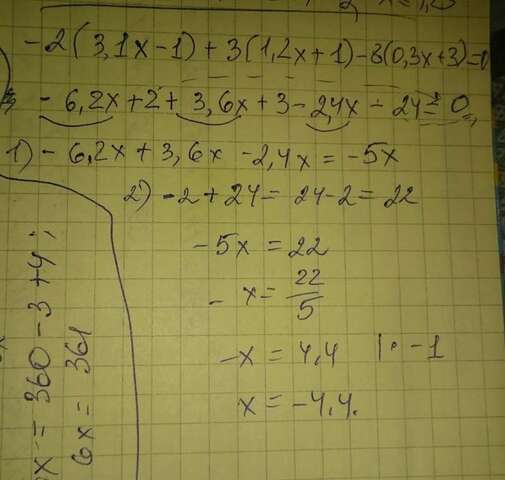 -2(3,1x-1)+3(1,2x+1)-8(0,3x+3)=0
-6,2x+2+3,6x+3-2,4x-24=0
1) -6,2x+3,6x-2,4x=-5x
2) -2+24=24-2=22
-5x=22
-x=22/5
-x=4,4 |·-1
x=-4,4.
x=360-3+4;
6x=361